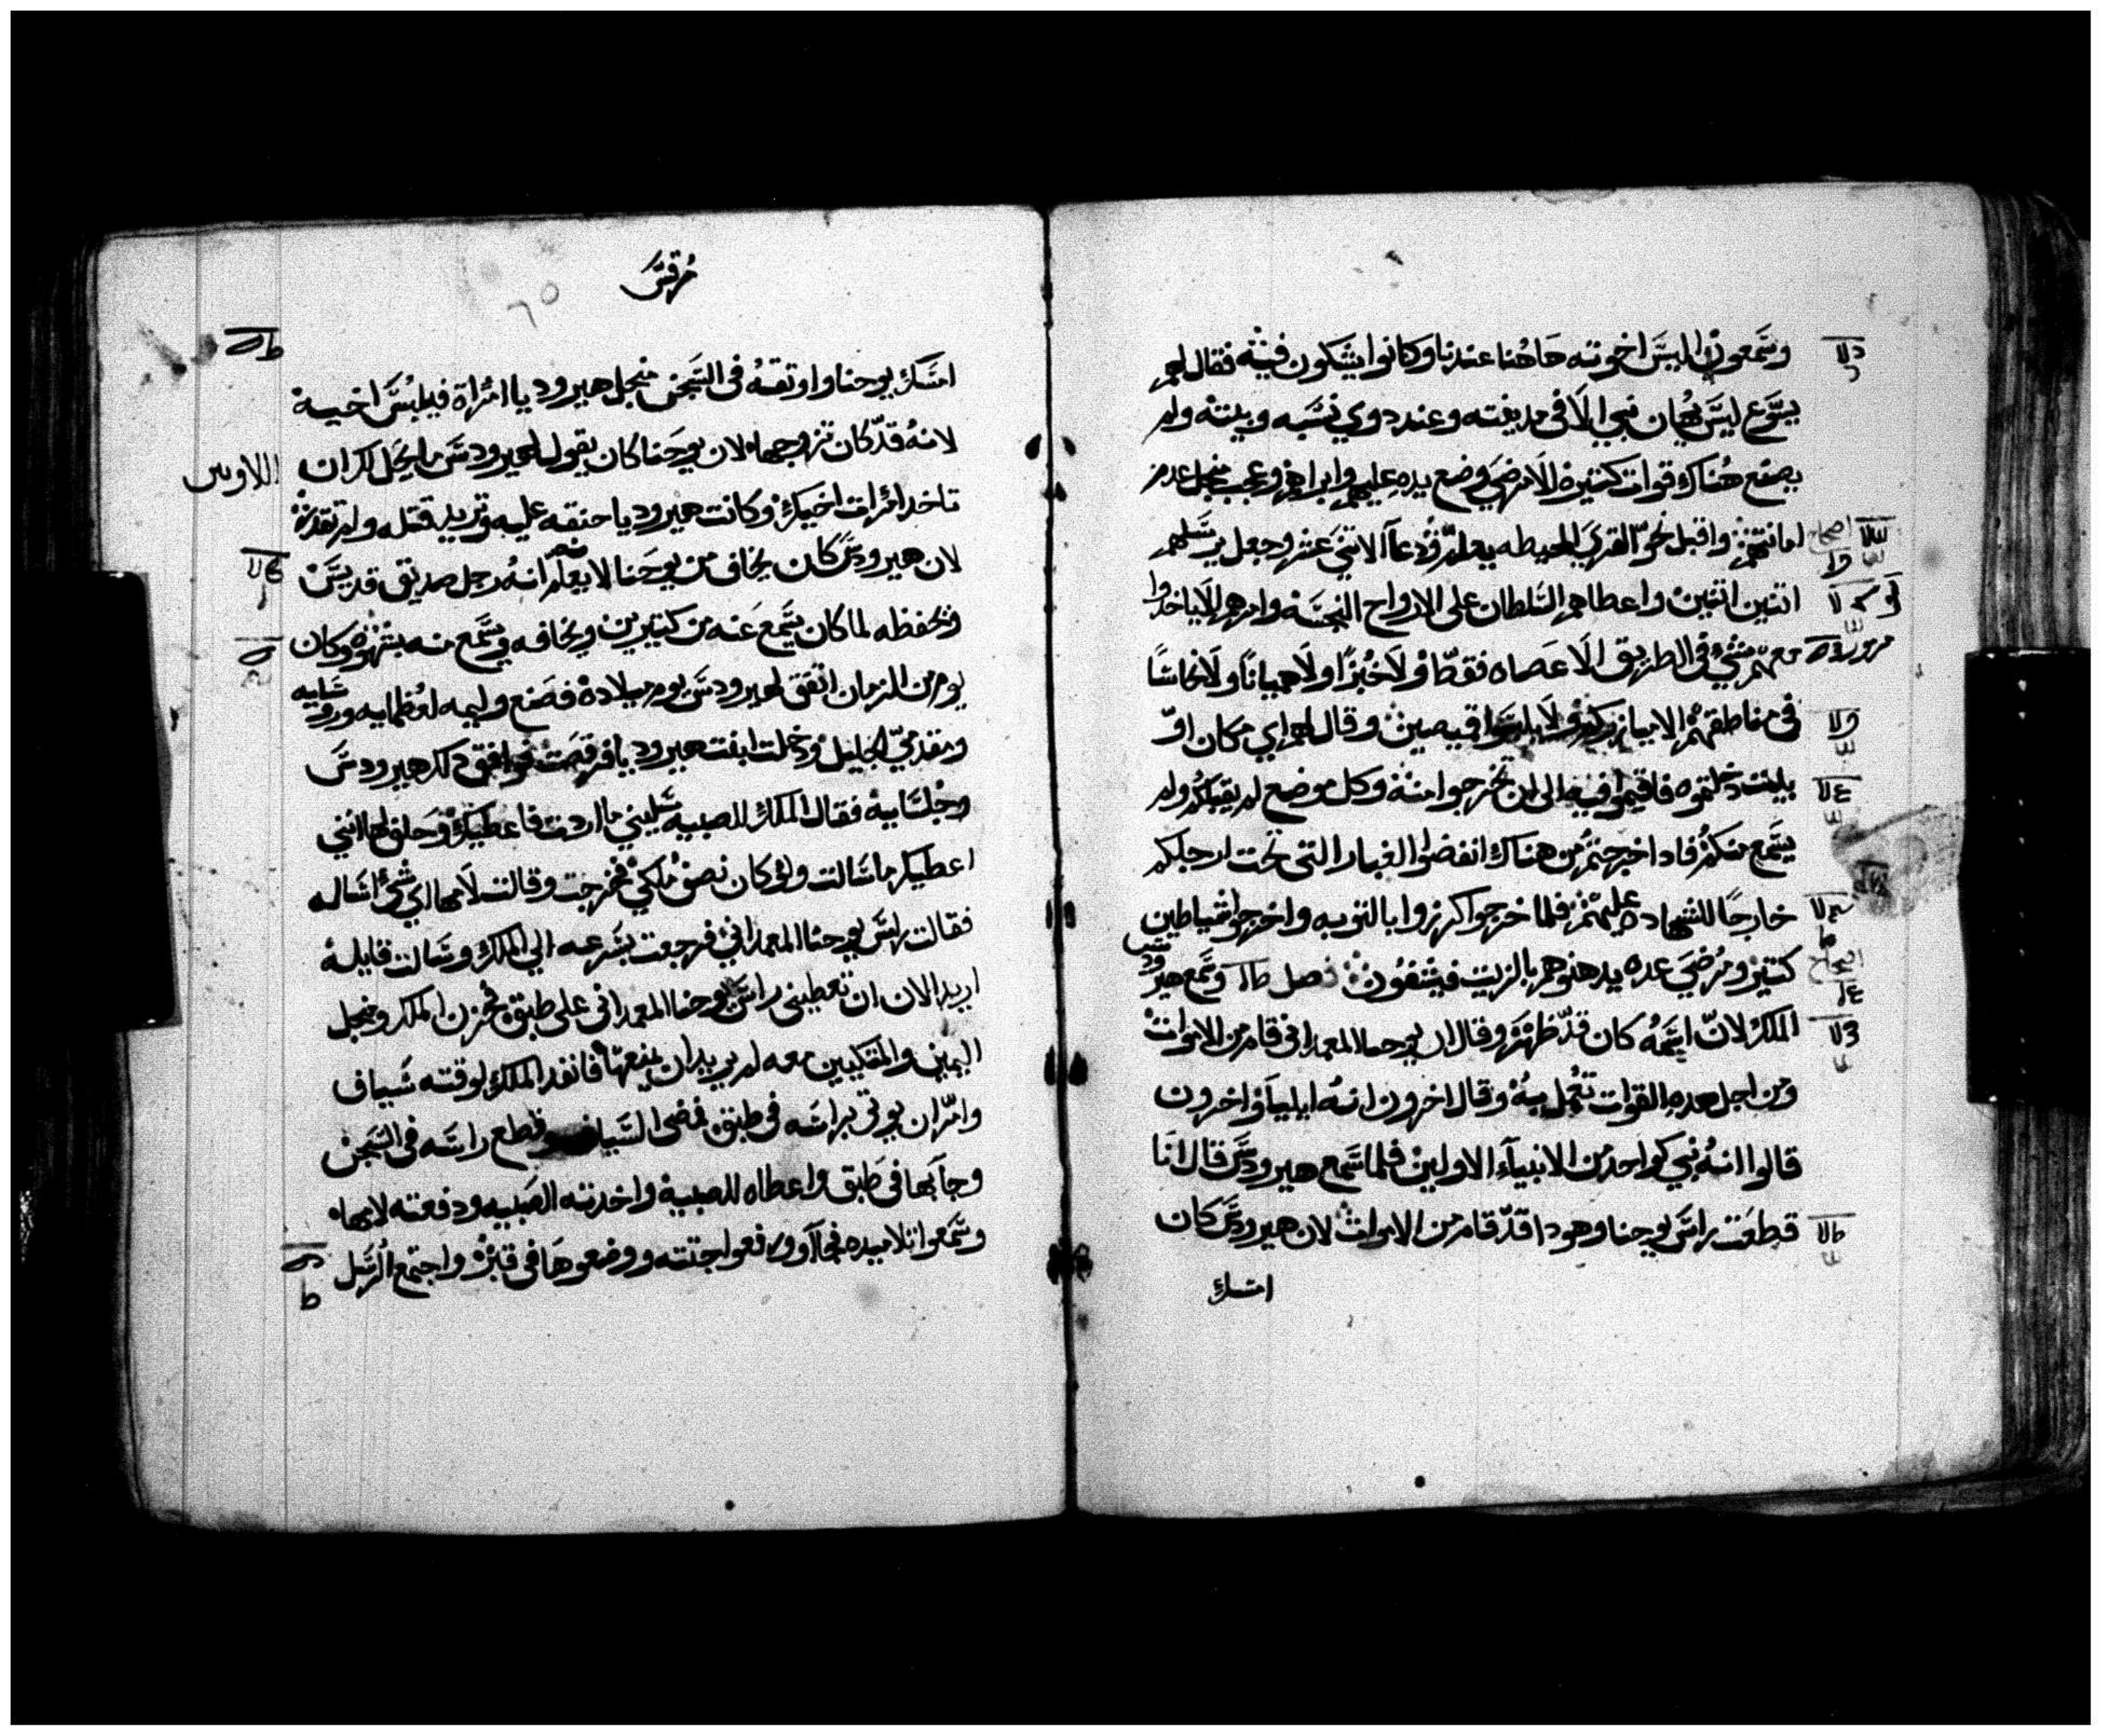 وسمعون اليس اخوته هاهنا عندنا وكانوا يشكون فيه فقال لهم
يسوع ليس يهان نبي الا في مدينته وعند دوي نسبه وبيته ولم
يصنع هناك قوات كتيره الا مرضي وضع يده عليهم وابراهم وعجب منجل عدم
امانتهم واقبل نحو القري المحيطه يعلم ودعا الاتني عشر وجعل يرسلهم
اصحاح
اتنين اتنين واعطاهم السلطان علي الارواح النجسه وامرهم الا ياخدوا
معهم شي في الطريق الا عصاه فقط ولا خبزا ولا هميانا ولا نحاسا
في مناطقهم الا ولا يلبسوا قميصين وقال لهم اي مكان او
بيت دخلتموه فاقيموا فيه الي ان تخرجوا منه وكل موضع لم يقبلكم ولم
يسمع منكم فادا خرجتم من هناك انفضوا الغبار التي تحت ارجلكم
خارجا للشهاده عليهم فلما خرجوا كرزوا بالتوبه واخرجوا شياطين
كتير ومرضي عده يدهنوهم بالزيت فيشفون فصل وسمع هيرودس
اصحاح
الملك لان اسمه كان قد ظهر وقال ان يوحنا المعمداني قام من الاموات
ومن اجل هده القوات تعمل به وقال اخرون انه ايليا واخرون
قالوا انه نبي كواحد من الانبياء الاولين فلما سمع هيرودس قال انا
قطعت راس يوحنا وهودا قد قام من الاموات لان هيرودس كان
امسك
مرقس
امسك يوحنا واوتقه في السجن منجل هيروديا امراة فيلبس اخيه
لانه قد كان تزوجها لان يوحنا كان يقول لهيرودس ما يحل لك ان
تاخد امرات اخيك وكانت هيروديا حنقه عليه وتريد قتله ولم تقدر
لان هيرودس كان يخاف من يوحنا لا يعلم انه رجل صديق قديس
ويحفظه لما كان يسمع عنه من كتيرين ويخافه ويسمع منه بشهوه وكان
يوم من الزمان اتفق لهيرودس يوم ميلاده فصنع وليمه لعظمايه وروسايه
ومقدمي الجليل ودخلت ابنت هيروديا فرقصت فوافق دلك هيرودس
وجلسايه فقال الملك للصبيه سليني ما اردت فاعطيك وحلف لها انني
اعطيك ما سالت ولو كان نصف ملكي فخرجت وقالت لامها اي شي اساله
فقالت راس يوحنا المعمداني فرجعت بسرعه الي الملك وسالت قايله
اريد الان ان تعطيني راس يوحنا المعمداني علي طبق فحزن الملك ومنجل
اليمين والمتكيين معه لم يريد ان يمنعها فانفد الملك لوقته سياف
وامر ان يوتي براسه في طبق فمضي السياف وقطع راسه في السجن
وجا بها في طبق واعطاه للصبيه واخدته الصبيه ودفعته لامها
وسمعوا تلاميده فجاآو ورفعوا جتته ووضعوها في قبر واجتمع الرسل